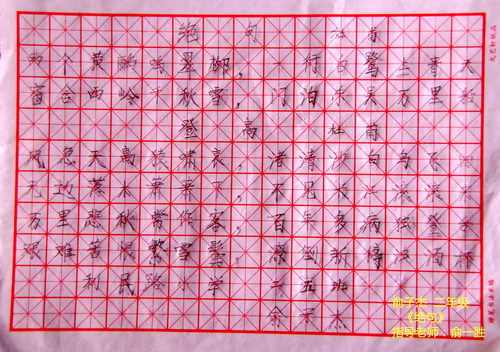 绝句 杜甫
两个黄鹂鸣翠柳,一行白鹭上青天
窗含西岭千秋雪,门泊东吴万里船
登高 杜甫
风急天高猿啸哀,渚清沙白鸟飞回
无边落木萧萧下,不尽长江滚滚来
万里悲秋常作客,百年多病独登台
艰难苦恨繁霜鬓,潦倒新停浊酒杯
利民路小学 六五班
余 杰
俞子杰 二年级
《绝句》
指导老师 俞一胜